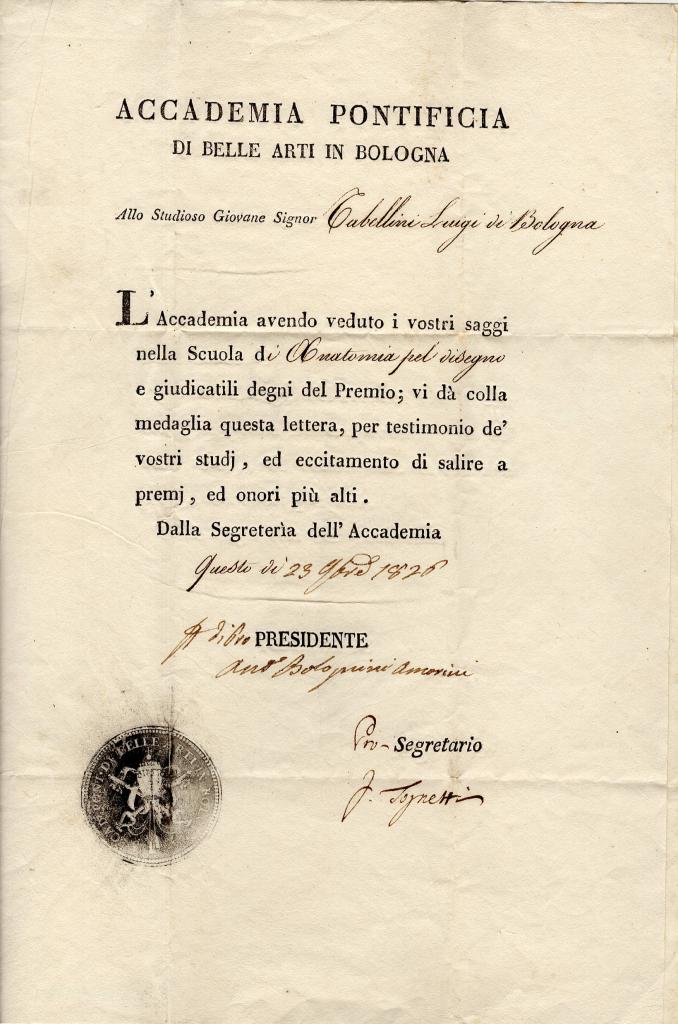 ACCADEMIA PONTIFICIA
DI BELLE ARTI IN BOLOGNA
Allo Studioso Giovane Signor Tabellini Luigi di Bologna
L'Accademia avendo veduto i vostri saggi
nella Scuola di Anatomia pel disegno
e giudicatili degni del Premio; vi dà colla
medaglia questa lettera, per testimonio de'
vostri studj, ed eccitamento di salire a
premj, ed onori più alti.
Dalla Segreterìa dell'Accademia
Questo dì 23 9bre 1826
PRESIDENTE
Anto Bolognini Amorini
Pro-Segretario
DI BELLE